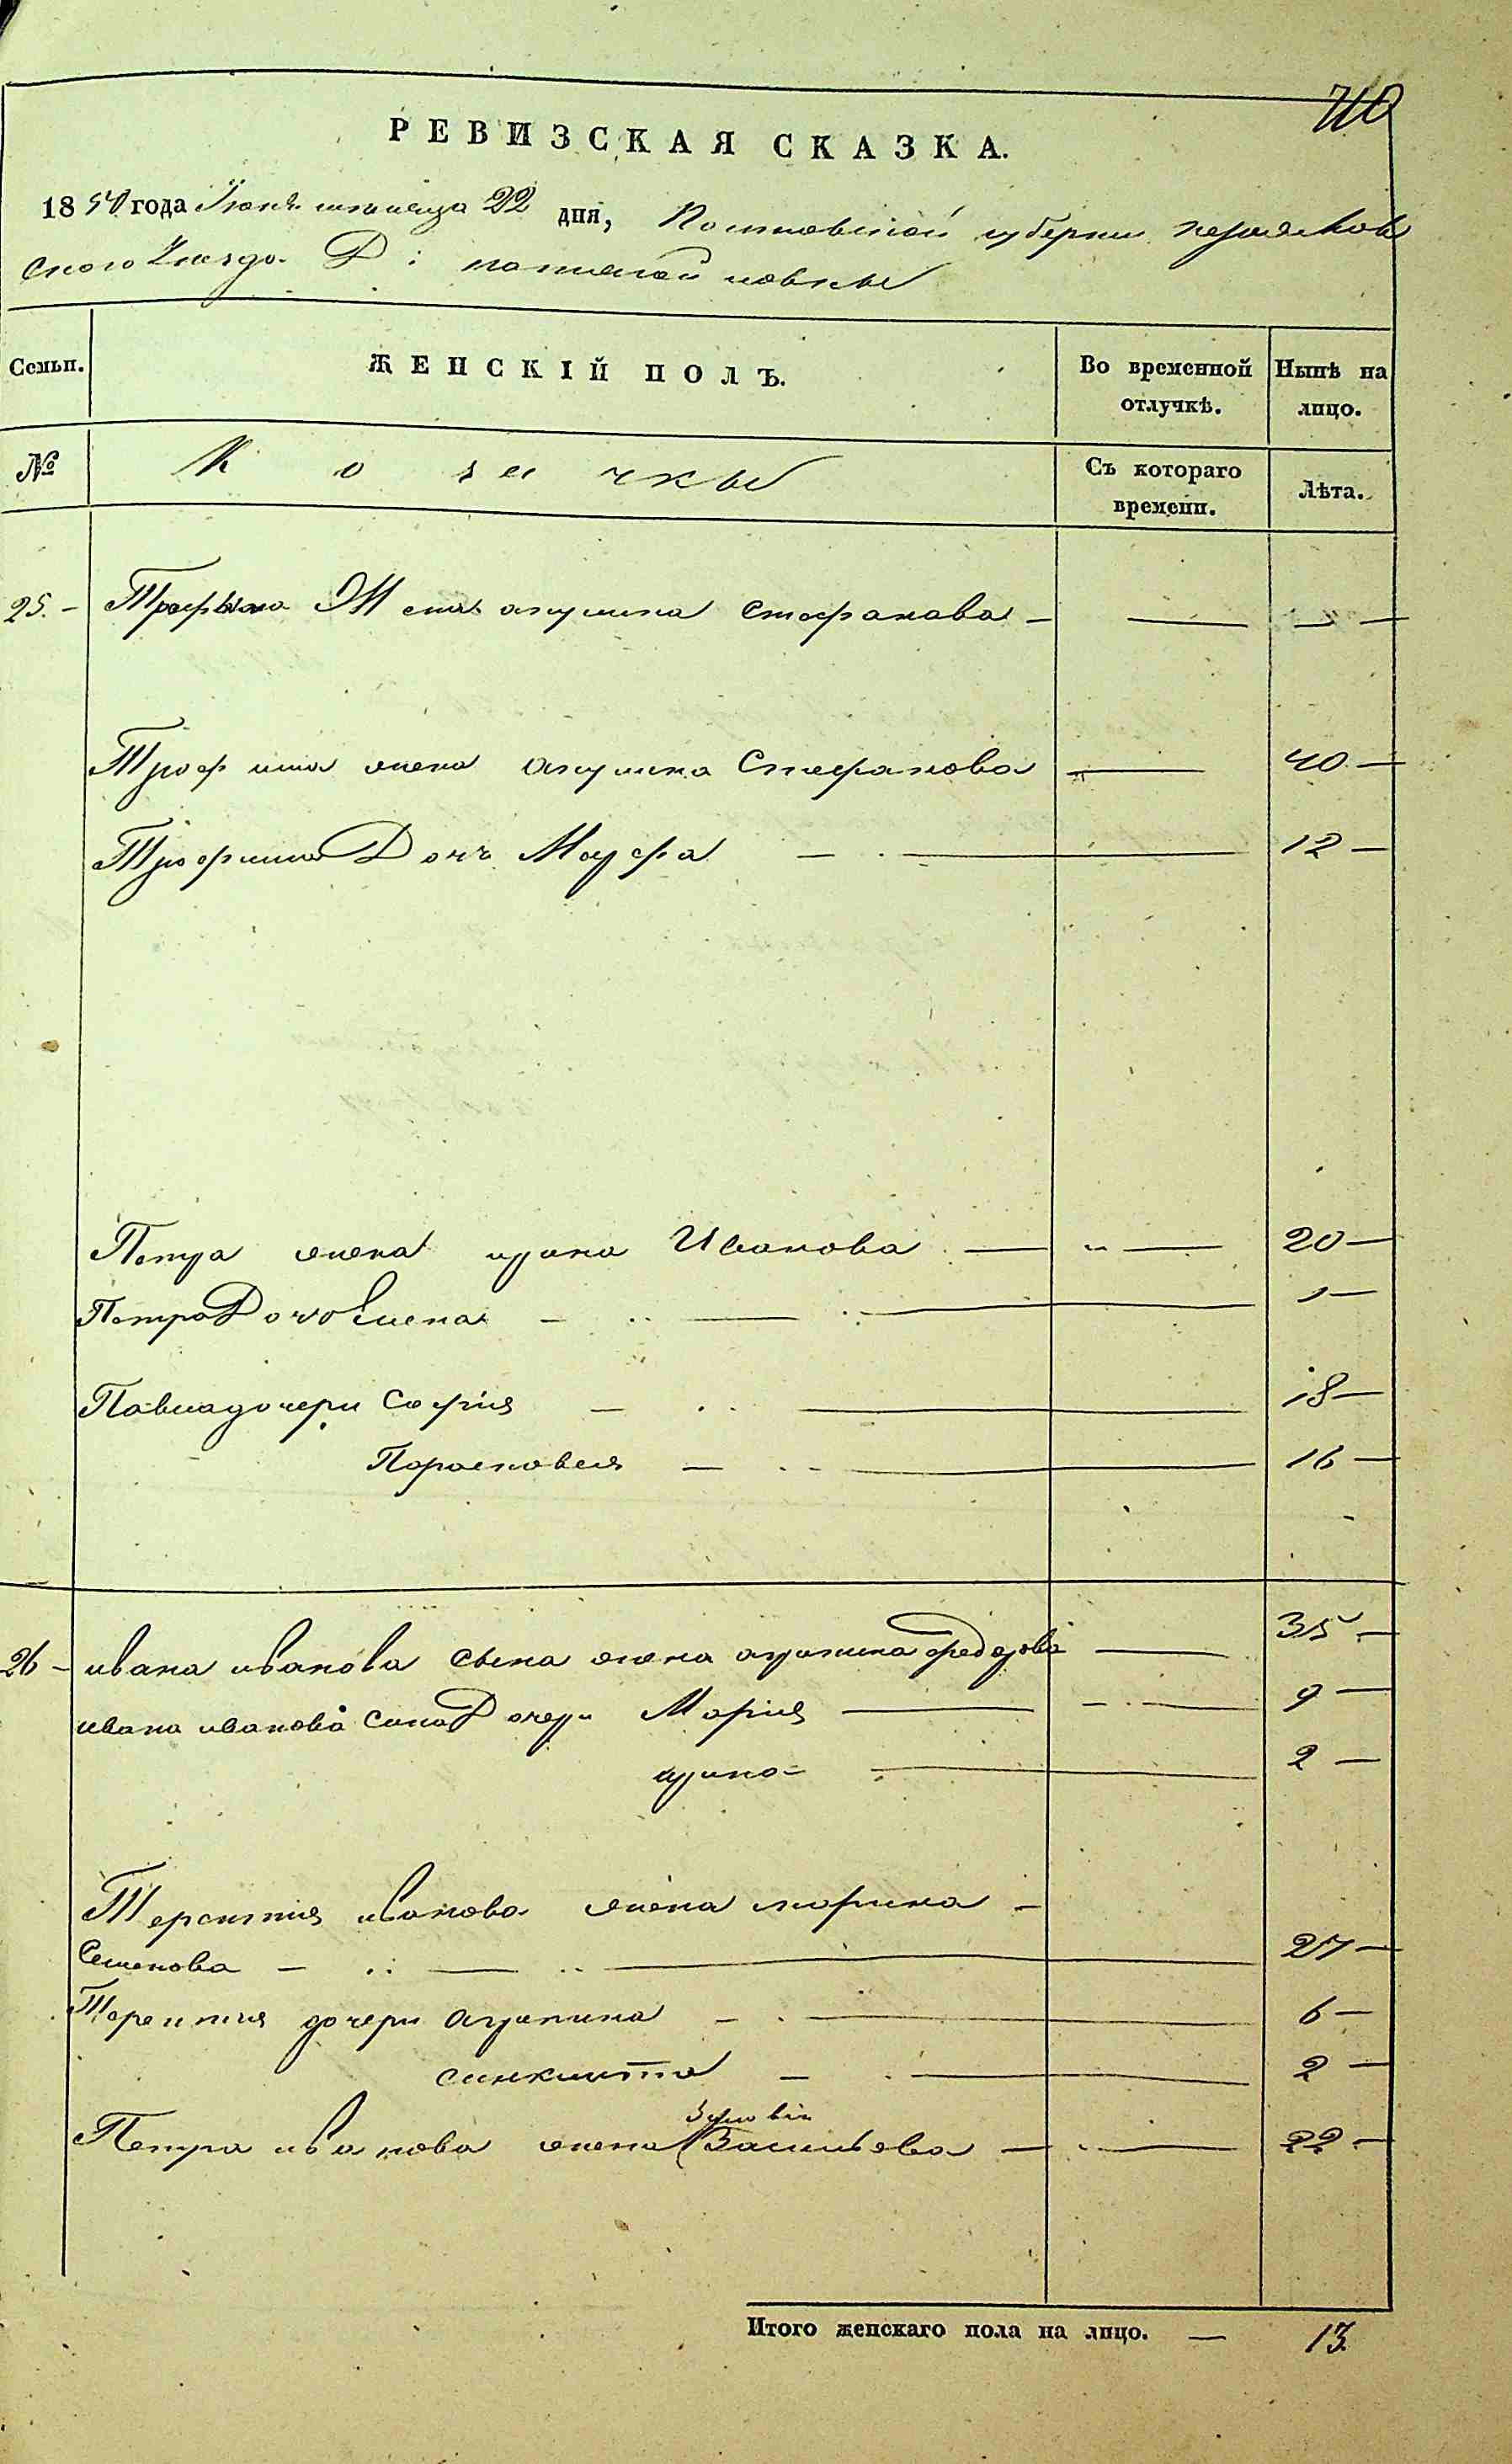 710
РЕВИЗСКАЯ СКАЗКА.
1850 года Іюня месяца 22 дня, Полтавской губернии
ского уезда Д:
Семьи. ЖЕНСКІЙ ПОЛЪ. Во временной отлучкѣ. Нынѣ на лицо.
№ Козачкы Съ котораго времени. Лѣта.
25. Стефанова
Трофима жена Акулина Стефанова 40
Трофима Дочь Марфа 12
Петра жена Ирина Иванова 20
Петра Дочь Елена 1
Павла дочери София 18
Парасковея 16
26 ивана иванова сына жена Федорова 35
ивана иванова сина Дочери Мария 9
ирина 2
Терентия иванова жена марина
Семенова 27
Терентия дочери Агрипина 6
синклита 2
Петра иванова жена Васильева 22
Итого женскаго пола на лицо. 13